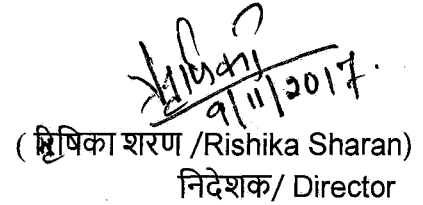 9/11/2017.
(रिषिका शरण /Rishika Sharan)
निदेशक/ Director